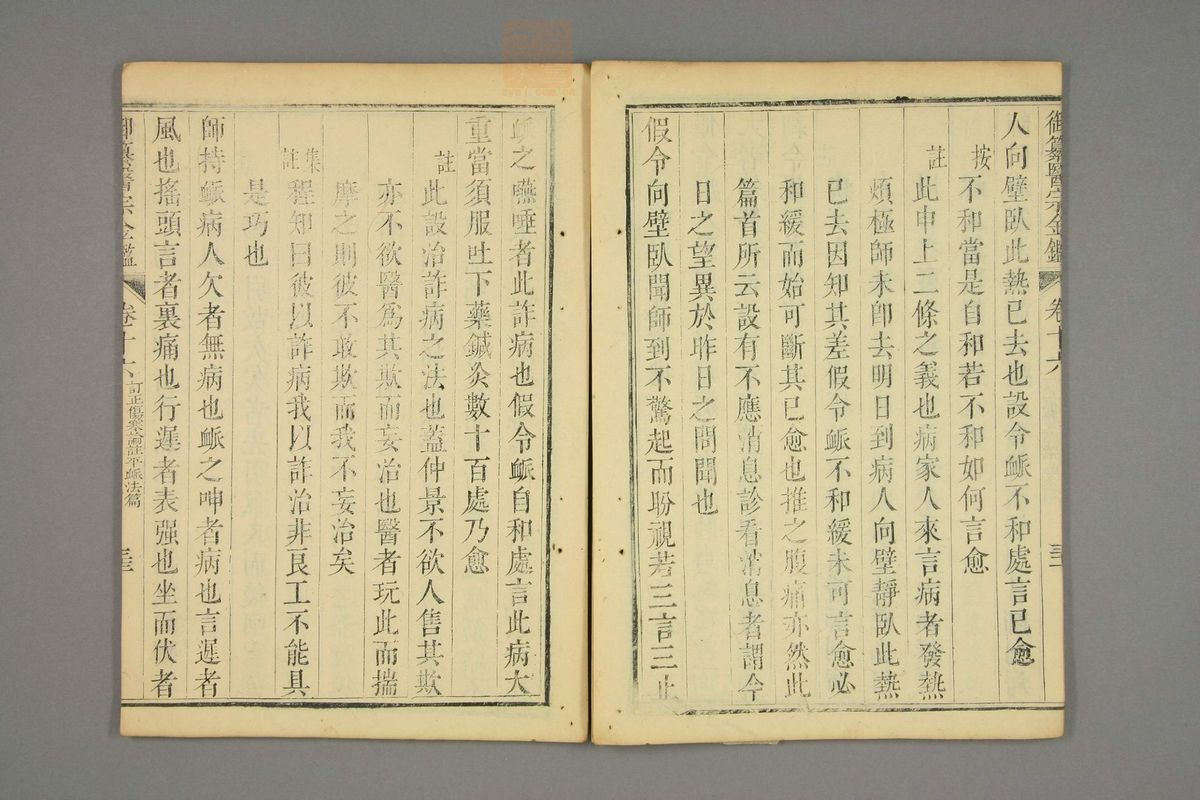 御纂醫宗金鑑 卷十六 三二
人向壁臥此熱已去也設令䘑不和處言已愈
按 不和當是自和若不和如何言愈
註 此申上二條之義也病家人來言病者發熱
煩極師未卽去明日到病人向壁靜臥此熱
已去因知其差假令䘑不和緩未可言愈必
和緩而始可斷其已愈也推之腹痛亦然此
篇首所云設有不應消息診看消息者謂今
日之望異於昨日之問聞也
假令向壁臥聞師到不驚起而盻視若三言三止
䘑之嚥唾者此詐病也假令䘑自和處言此病大
重當須服吐下藥鍼灸數十百處乃愈
註 此設治詐病之法也蓋仲景不欲人售其欺
亦不欲醫爲其欺而妄治也醫者玩此而揣
摩之則彼不敢欺而我不妄治矣
集註 程知曰彼以詐病我以詐治非良工不能具
是巧也
師持䘑病人欠者無病也䘑之呻者病也言遲者
風也搖頭言者裏痛也行遲者表强也坐而伏者
御纂醫宗金鑑 卷十六 訂正傷寒論註平䘑法篇 三三